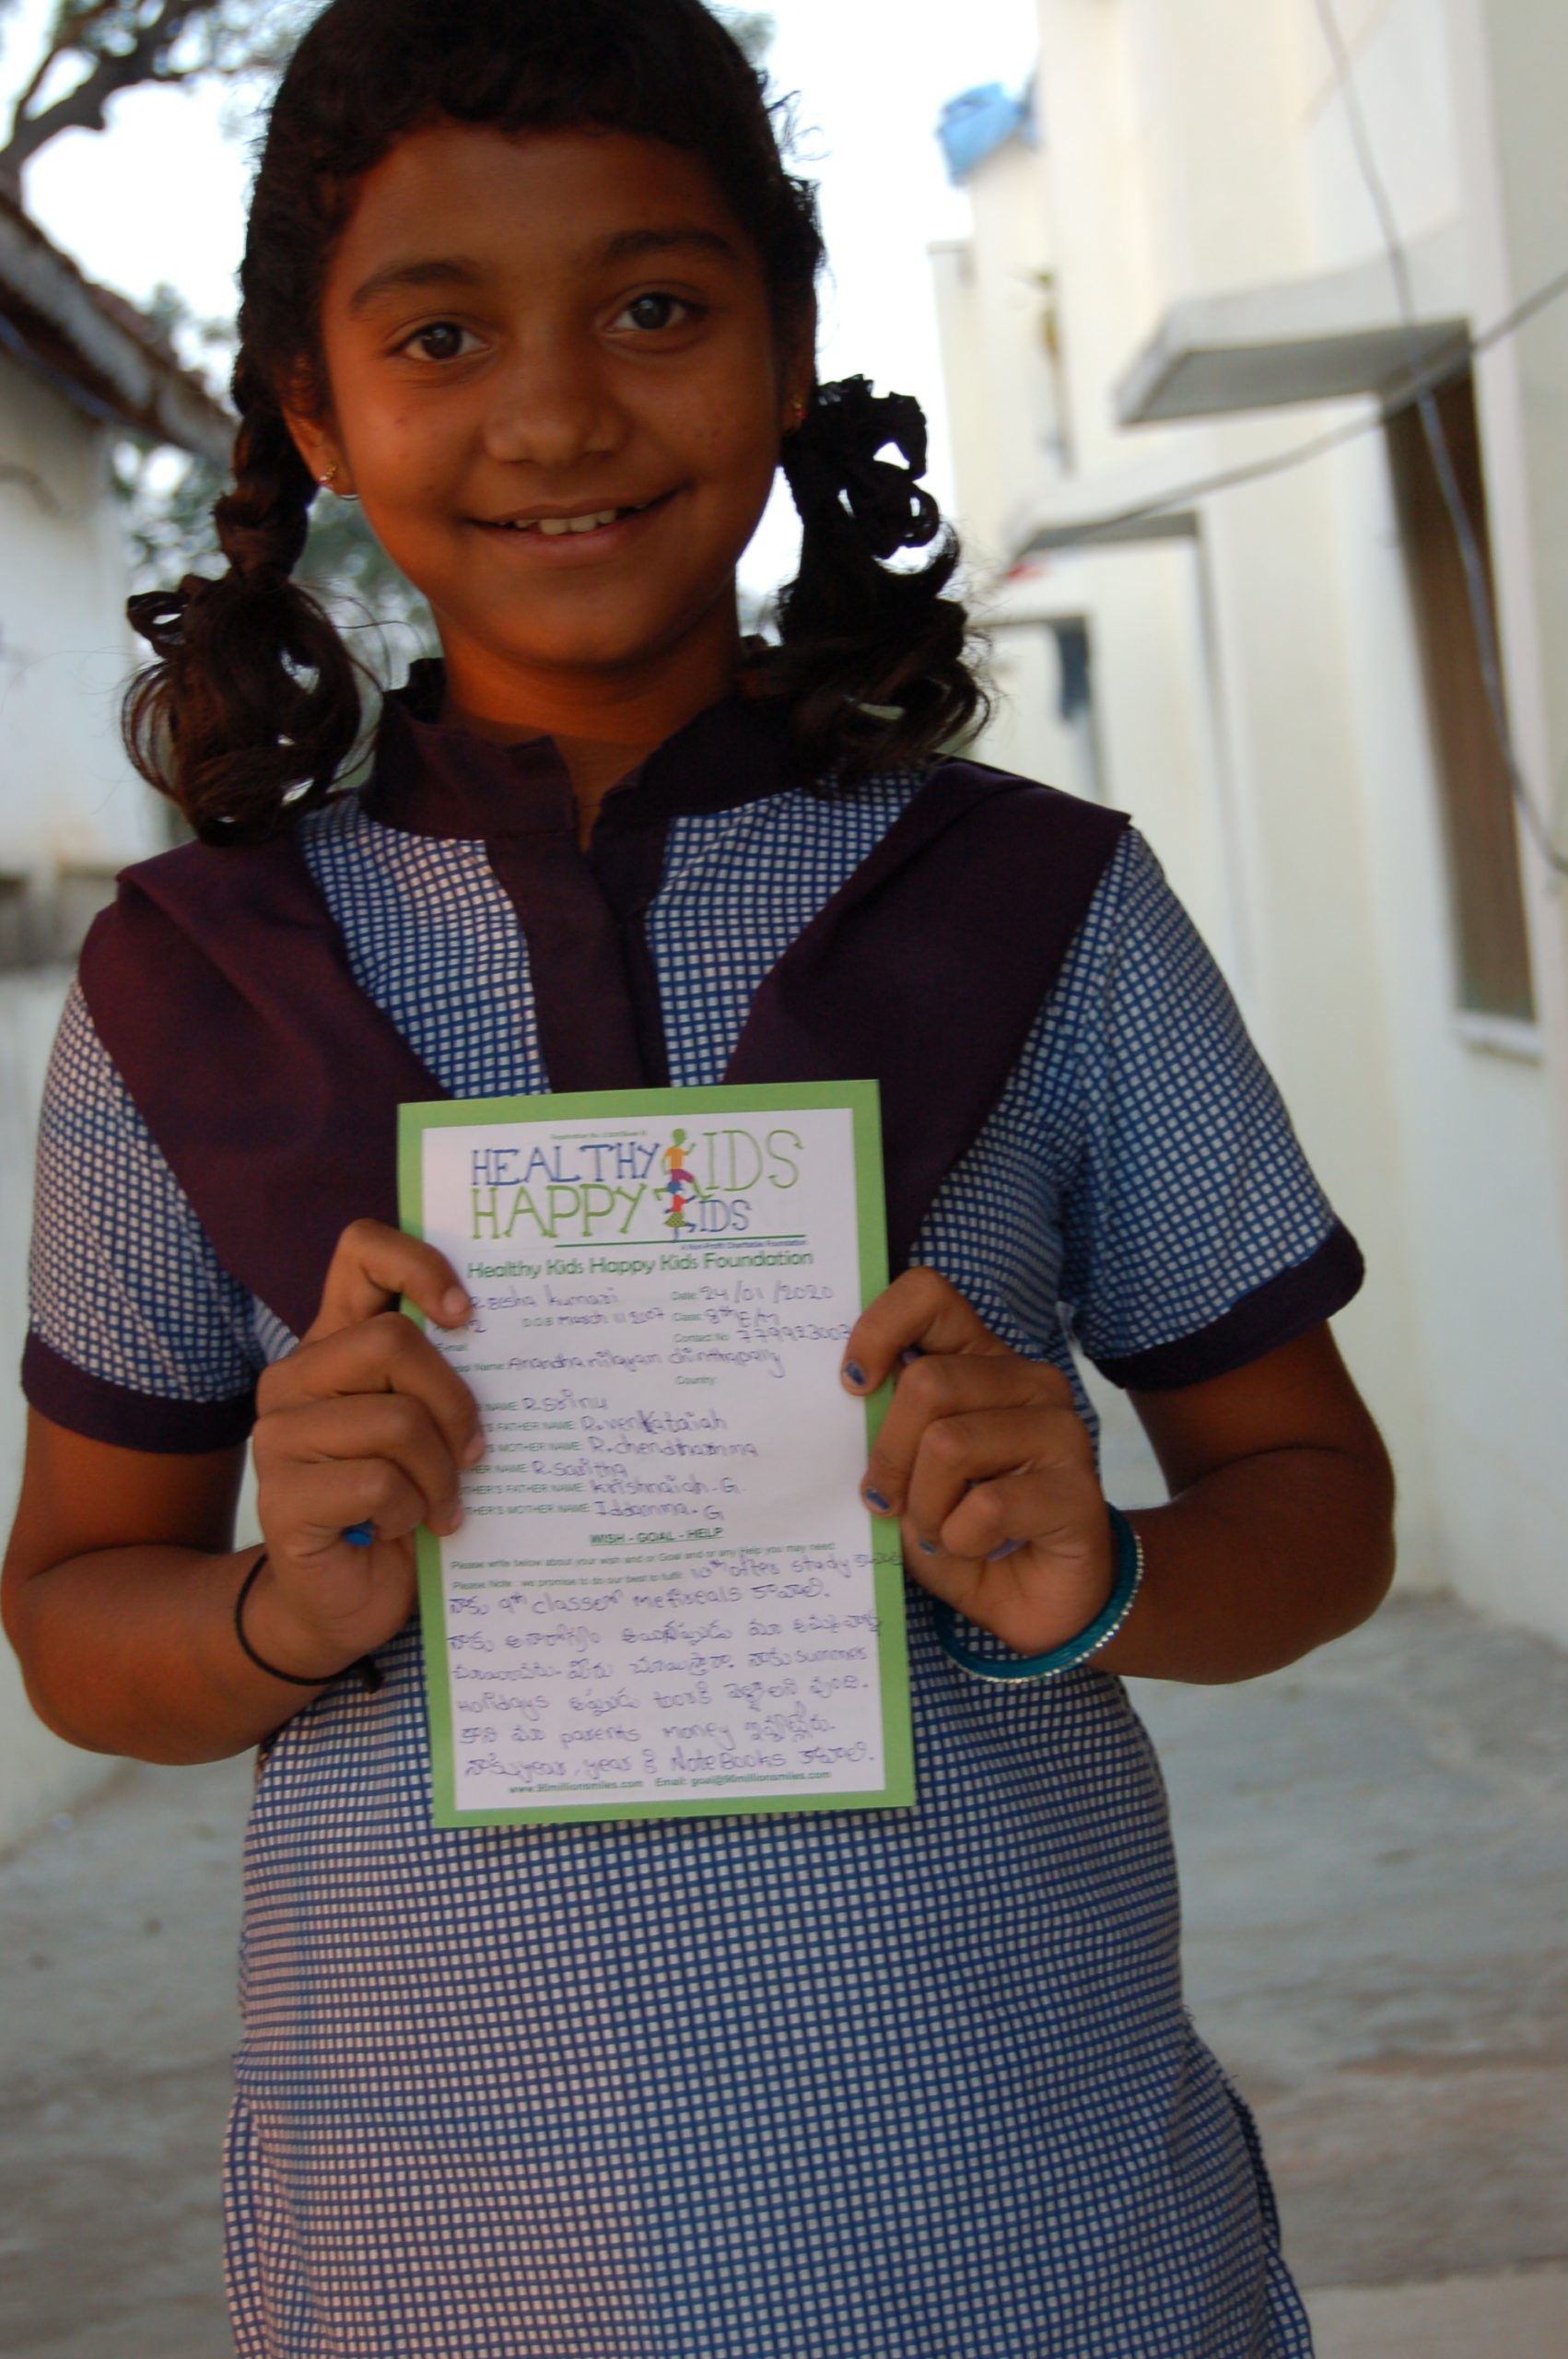 HEALTHY KIDS
HAPPY KIDS
A Non-Profit Charitable Foundation
Healthy Kids Happy Kids Foundation
Reesha kumari Date: 24/01/2020
D.O.B March 11 2007 Class: 8th E/M
Email Contact No 779923003
Name: Anandha nilayam chinthapally
Country:
NAME: R. Srinu
'S FATHER NAME: R. venkataiah
'S MOTHER NAME: R. chendhramma
HER NAME: R. saritha
THER'S FATHER NAME: Krishnaiah. G.
THER'S MOTHER NAME: Iddamma. G
WISH - GOAL - HELP
Please write below about your wish and or Goal and or any Help you may need:
Please Note: we promise to do our best to fulfil. 10th after study
నాకు 9th classలో metireals కావాలి.
నాకు అనారోగ్యం మా
నాకు summer
Holidays వుంది.
కాని మా parents money
year, year కి NoteBooks కావాలి.
www.90millionsmiles.com Email: goal@90millionsmiles.com